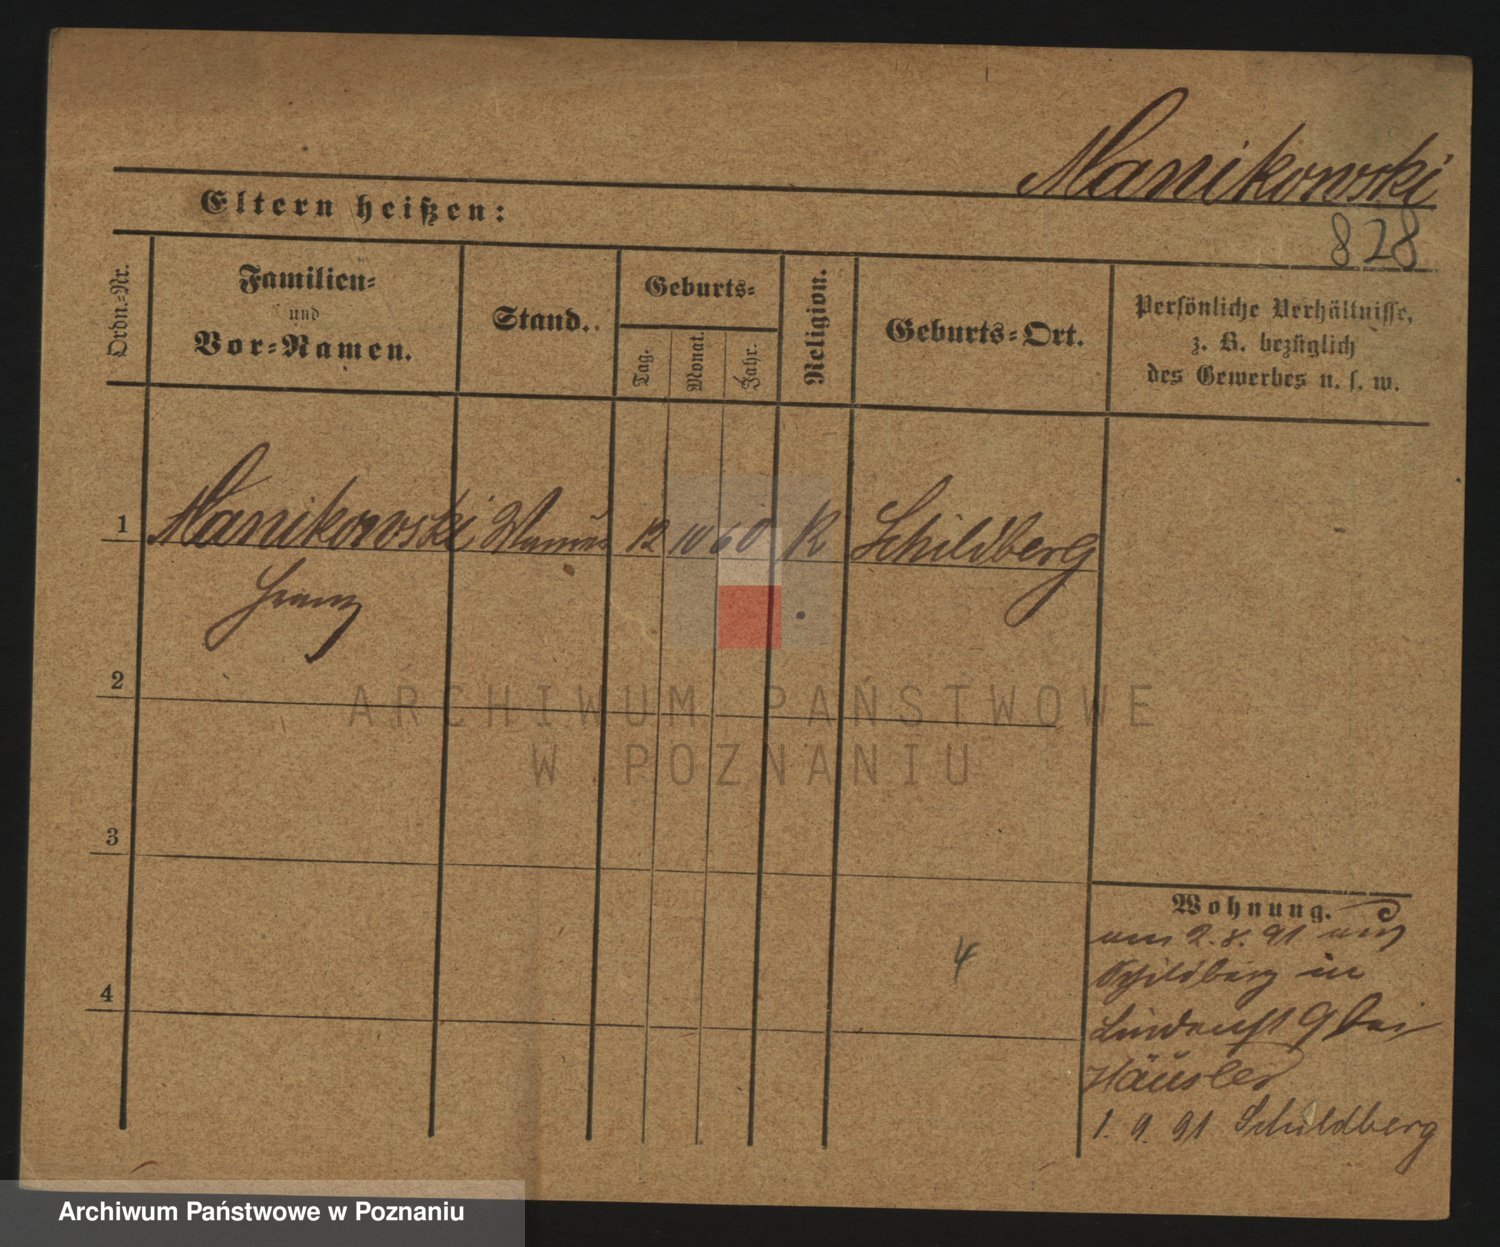 Manikowski
Eltern heißen:
828
Ordn.-Nr.
Familien-
und
Vor-Namen.
Stand.
Geburts-
Tag.
Monat.
Jahr.
Religion.
Geburts-Ort.
Persönliche Verhältnisse,
z. B. bezüglich
des Gewerbes u. s. w.
1 Manikowski 12 10 60 R Schildberg
Franz
2
ARCHIWUM PAŃSTWOWE
W POZNANIU
3
Wohnung.
am 2. 8. 91 aus
4
Schildberg in
4
Lindenst 9 bei
Häusler
1. 9. 91 Schildberg
Archiwum Państwowe w Poznaniu